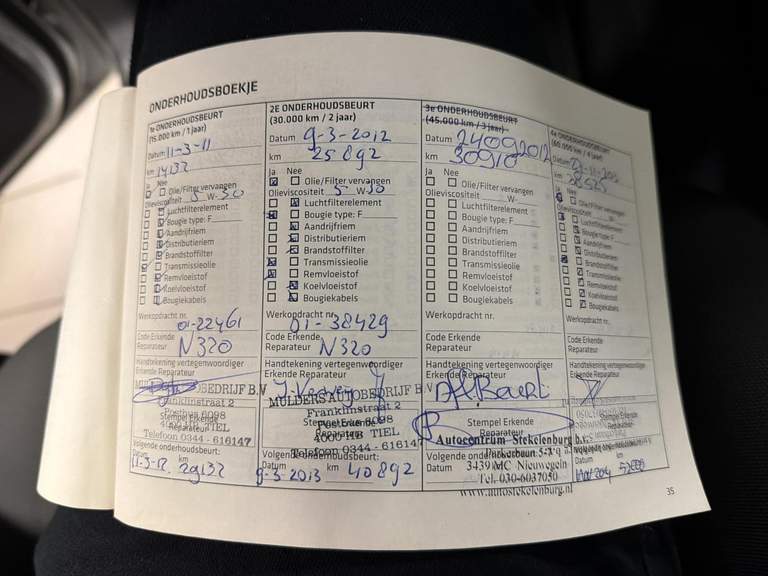 ONDERHOUDSBOEKJE
1e ONDERHOUDSBEURT
(15.000 km / 1 jaar)
Datum 11-3-11
km 14132
Ja Nee
Olie/Filter vervangen
Olieviscositeit 5 W-30
Luchtfilterelement
Bougie type: F
Aandrijfriem
Distributieriem
Brandstoffilter
Transmissieolie
Remvloeistof
Koelvloeistof
Bougiekabels
Werkopdracht nr.
01-22461
Code Erkende
Reparateur N320
Handtekening vertegenwoordiger
Erkende Reparateur
AUTOBEDRIJF B.V
Franklinstraat 2
Postbus 6098
Stempel Erkende
Reparateur
4000 HB TIEL
Telefoon 0344 - 616147
Volgende onderhoudsbeurt:
Datum km
11-3-12 29132
2E ONDERHOUDSBEURT
(30.000 km / 2 jaar)
Datum 9-3-2012
km 25892
Ja Nee
Olie/Filter vervangen
Olieviscositeit 5 W-30
Luchtfilterelement
Bougie type: F
Aandrijfriem
Distributieriem
Brandstoffilter
Transmissieolie
Remvloeistof
Koelvloeistof
Bougiekabels
Werkopdracht nr.
01-38429
Code Erkende
Reparateur N320
Handtekening vertegenwoordiger
Erkende Reparateur
MULDERS AUTOBEDRIJF B.V
Franklinstraat 2
Stempel Erkende
Reparateur
4000 HB TIEL
Telefoon 0344 - 616147
Volgende onderhoudsbeurt:
Datum km
9-3-2013 40892
3e ONDERHOUDSBEURT
(45.000 km / 3 jaar)
Datum 24092012
km 30910
Ja Nee
Olie/Filter vervangen
Olieviscositeit W-
Luchtfilterelement
Bougie type: F
Aandrijfriem
Distributieriem
Brandstoffilter
Transmissieolie
Remvloeistof
Koelvloeistof
Bougiekabels
Werkopdracht nr.
Code Erkende
Reparateur
Handtekening vertegenwoordiger
Erkende Reparateur
Stempel Erkende
Reparateur
Autocentrum Stekelenburg b.v.
Parkerbaan
3439 MC Nieuwegein
Tel. 030-6037050
www.autostekelenburg.nl
Volgende onderhoudsbeurt:
Datum
4e ONDERHOUDSBEURT
(60.000 km / 4 jaar)
Datum
km
Ja Nee
Olie/Filter vervangen
Olieviscositeit W-
Luchtfilterelement
Bougie type: F
Aandrijfriem
Distributieriem
Brandstoffilter
Transmissieolie
Remvloeistof
Koelvloeistof
Bougiekabels
Werkopdracht nr.
Code Erkende
Reparateur
Handtekening vertegenwoordiger
Erkende Reparateur
Stempel Erkende
Reparateur
Volgende onderhoudsbeurt:
Datum km
35